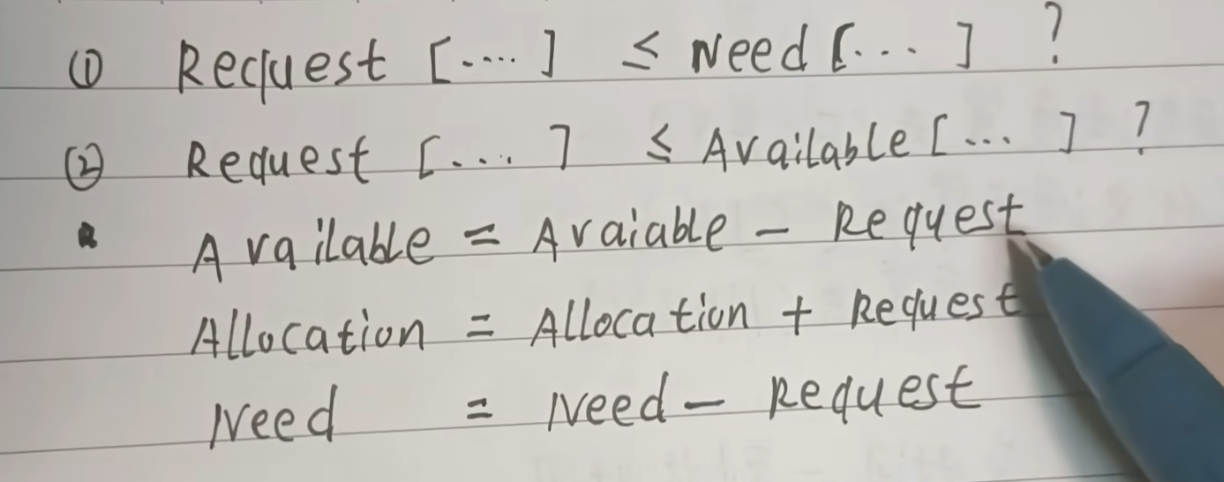 ① Request [....] ≤ Need [... ] ?
② Request [.... ] ≤ Available [... ] ?
Available = Avaiable - Request
Allocation = Allocation + Request
Need = Need - Request